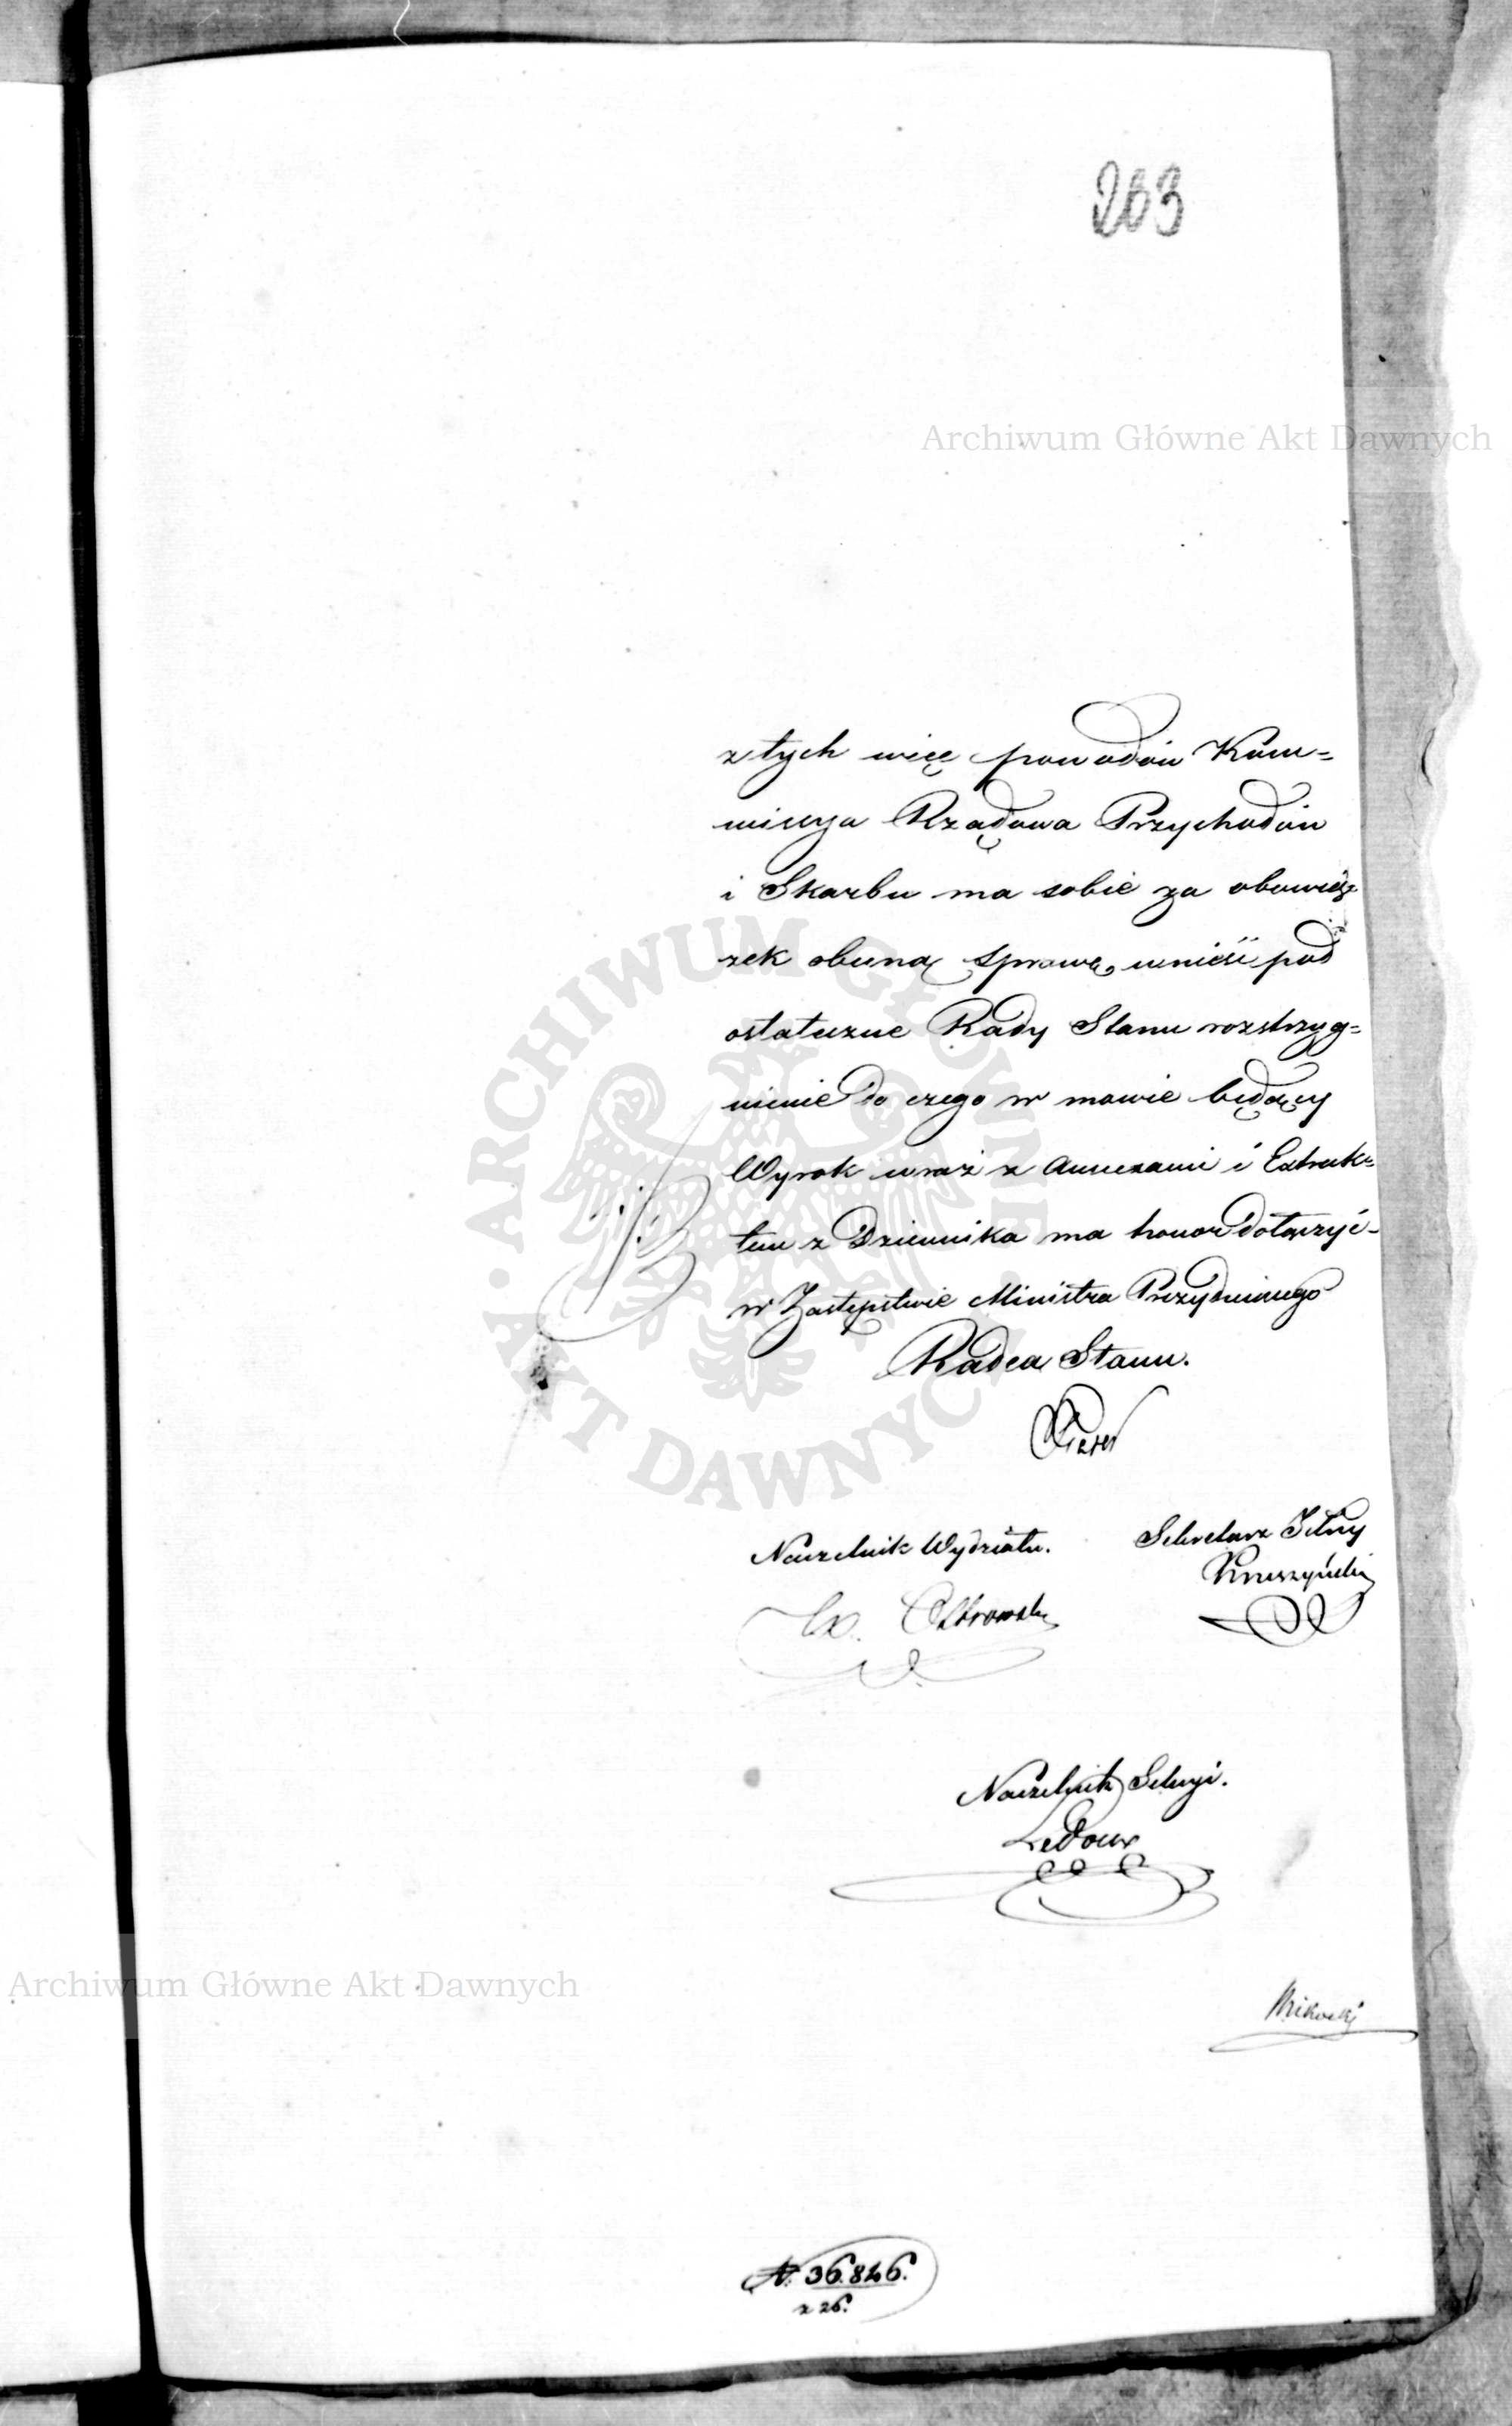 203
Archiwum Główne Akt Dawnych
z tych więc powodów Kom=
missya Rządowa Przychodów
i Skarbu ma sobie za obowią=
zek obecną sprawę wnieść pod
ostateczne Rady Stanu rozstrzyg=
nienie do czego w mowie będący
Wyrok wraz z annexami i Extrak=
tem z Dziennika ma honor dołączyć-
w Zastępstwie Ministra Prezydującego
Radca Stanu.
Naczelnik Wydziału.
Sekretarz Jlny
Kruszyński
Naczelnik Sekcyi.
Ledoux
Archiwum Główne Akt Dawnych
N. 36.846.
z 26.
ARCHIWUM GŁÓWNE AKT DAWNYCH